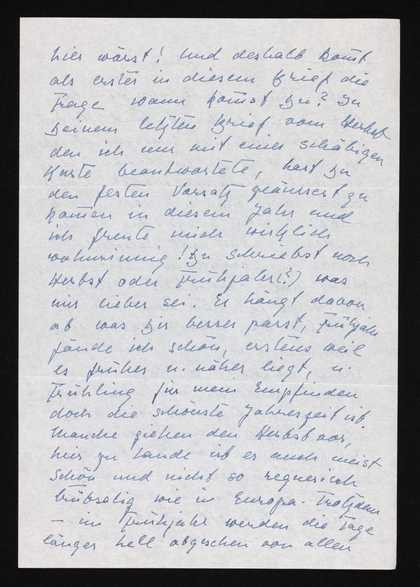 hier wärst! Und deshalb kommt
als erstes in diesem Brief die
Frage wann kommst Du? In
Deinem letzten Brief vom Herbst
den ich nur mit einer schäbigen
Karte beantwortete, hast Du
den festen Vorsatz geäussert zu
kommen in diesem Jahr und
ich freute mich wirklich
wahnsinnig! Du schriebst noch
Herbst oder Frühjahr(?) was
mir lieber sei. Es hängt davon
ab was Dir besser passt, Frühjahr
fände ich schön, erstens weil
es früher u. näher liegt, u.
Frühling für mein Empfinden
doch die schönste Jahreszeit ist.
Manche ziehen den Herbst vor,
hier zu Lande ist es auch meist
schön und nicht so regnerisch
trübselig wie in Europa. Trotzdem
– im Frühjahr werden die Tage
länger hell abgesehen von allen